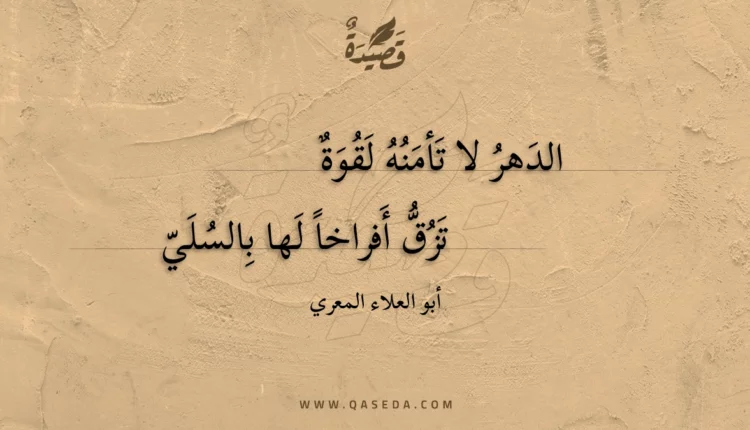 قَصِيدَةٌ
الدَهرُ لا تَأمَنُهُ لَقُوَةٌ
تَزُقُّ أَفراخاً لَها بِالسُلَيّ
أبو العلاء المعري
WWW.QASEDA.COM